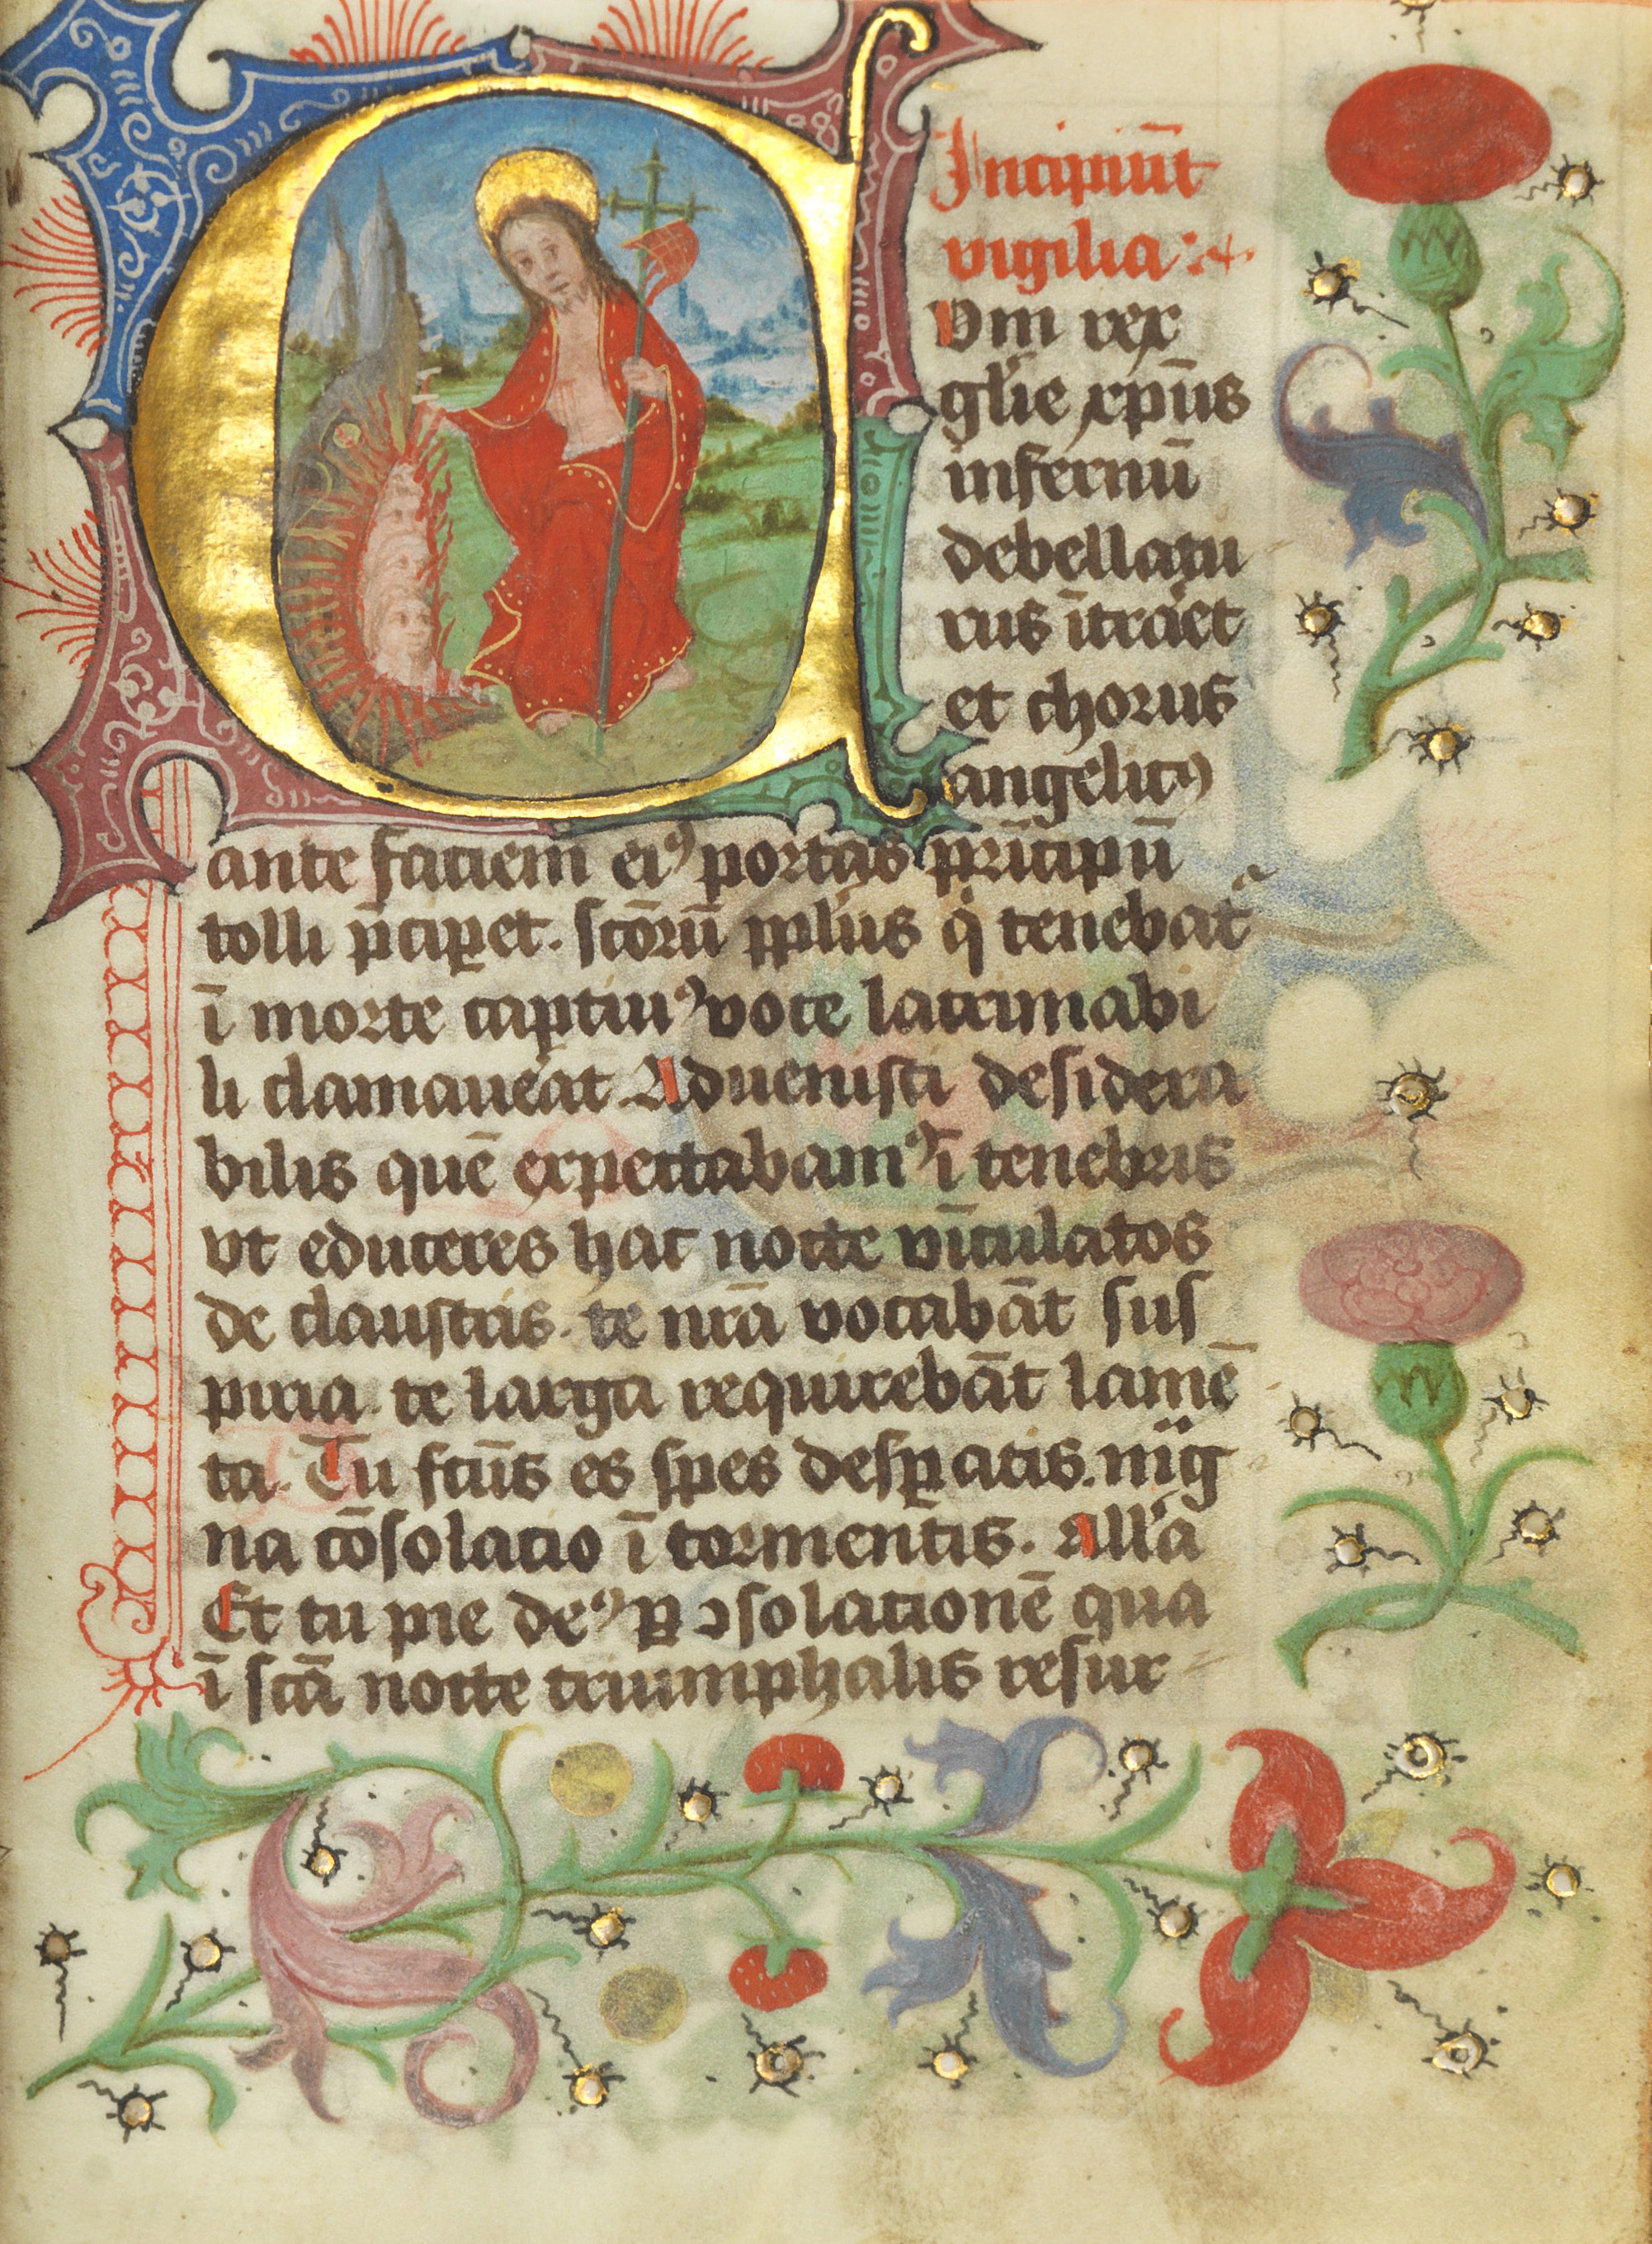 Incipiūt
vigilia
C Vm rex
gl'ie xp̄us
infernū
debellatu
rus ītraret
et chorus
angelicꝰ
ante faciem eiꝰ portas prīcipū
tolli p̄cip̲et. sc̄orū pp̄lus q̇ tenebat᷑
ī morte captiuꝰ voce lacrimabi
li clamaue᷑at Aduenisti desidera
bilis quē expectabamꝰ ī tenebris
vt educeres hac nocte vīculatos
de claustris. te nr̄a vocabāt sus
piria. te larga requirebāt lamē
ta. Tu fc̄us es spes desꝑatis. mag
na cōsolacio ī tormentis. All'a
Et tu pie deꝰ ꝑ ꝯsolacionē qua
ī sc̄a nocte triumphalis resur